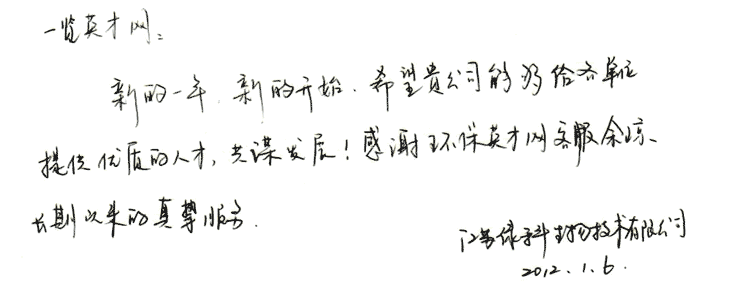 一览英才网:
新的一年,新的开始.希望贵公司能够给各单位
提供优质的人才,共谋发展!感谢环保英才网客服余琼、
长期以来的真挚服务.
江苏绿科生物技术有限公司
2012.1.6.